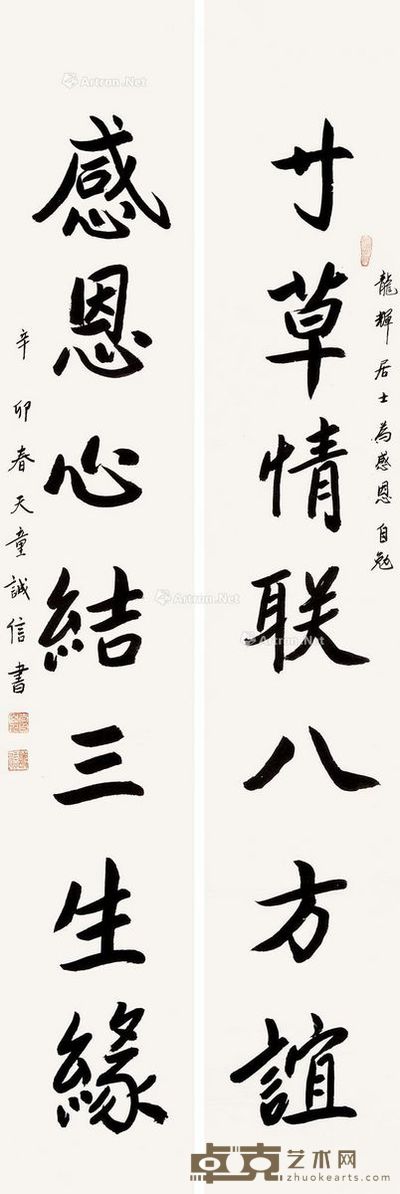 寸草情联八方誼
龍輝居士為感恩自勉
感恩心結三生緣
辛卯春天童誠信書
Artron.Net
Artron.Net
Artron.Net
卓克艺术网
zhuokearts.com